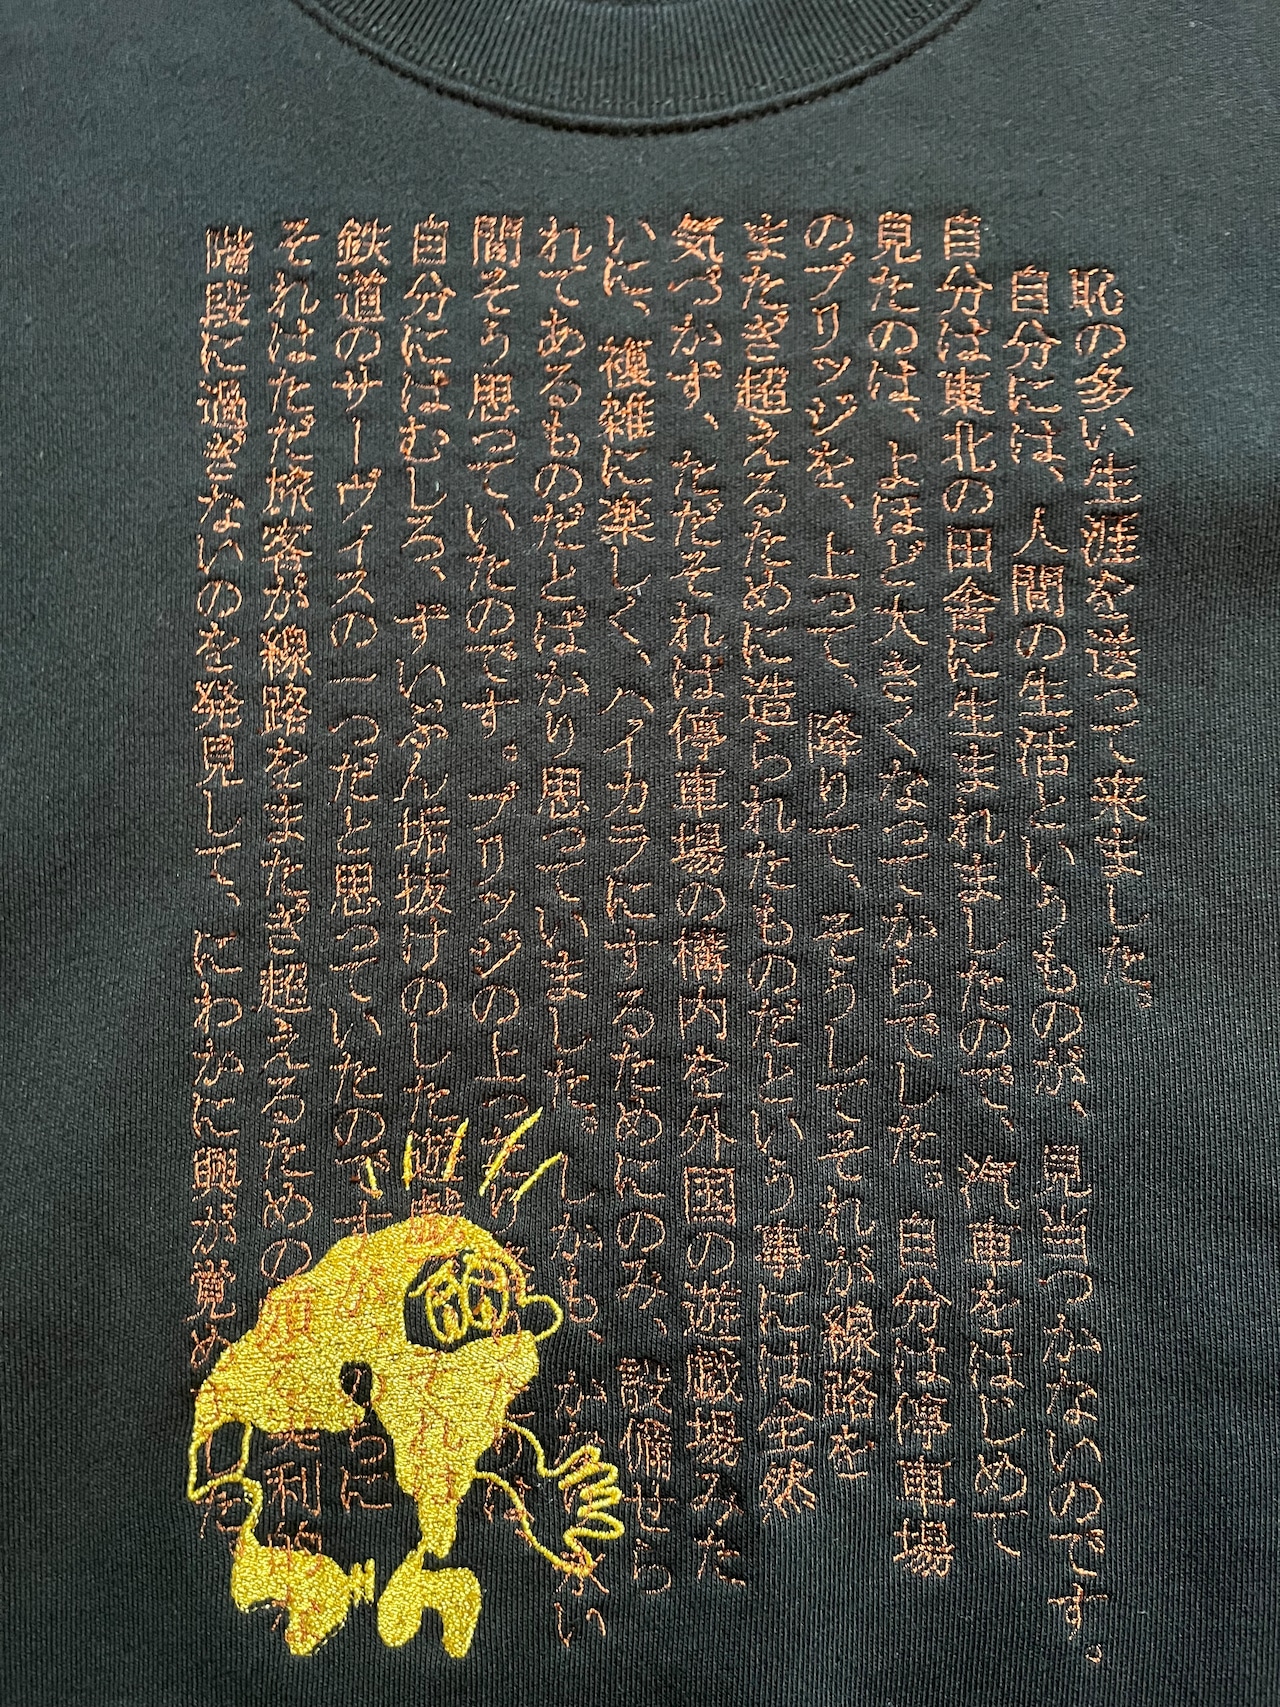 恥の多い生涯を送って来ました。
自分には、人間の生活というものが、見当つかないのです。
自分は東北の田舎に生まれましたので、汽車をはじめて
見たのは、よほど大きくなってからでした。自分は停車場
のブリッジを、上って、降りて、そうしてそれが線路を
またぎ超えるために造られたものだという事には全然
気づかず、ただそれは停車場の構内を外国の遊戯場みた
いに、複雑に楽しく、ハイカラにするためにのみ、設備せら
れてあるものだとばかり思っていました。しかも、かなり 永い
間そう思っていたのです。ブリッジの上ったり
自分にはむしろ、ずいぶん垢抜けのした遊戯
鉄道のサーヴィスの一つだと思っていたのですが、のちに
それはただ旅客が線路をまたぎ超えるための頗る実利的な
階段に過ぎないのを発見して、にわかに興が覚めました